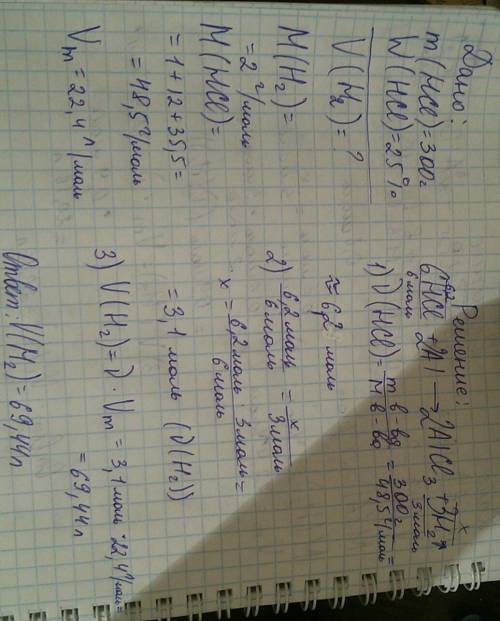 Дано:
m(HCl)=300г
W(HCl)=25%
V(H₂)=?
M(H₂)=
=2 г/моль
M(HCl)=
=1+12+35,5=
=48,5 г/моль
Vm=22,4 л/моль
Решение:
6HCl+2Al→2AlCl₃+3H₂
6 моль 3 моль
1) ν(HCl)= m в-ва / M в-ва = 300г / 48,5 г/моль =
≈6,2 моль
2) 6,2 моль / 6 моль = x / 3 моль
x= 6,2 моль · 3 моль / 6 моль =
=3,1 моль (ν(H₂))
3) V(H₂)=ν·Vm=3,1 моль·22,4 л/моль=
=69,44 л
Ответ: V(H₂)=69,44 л